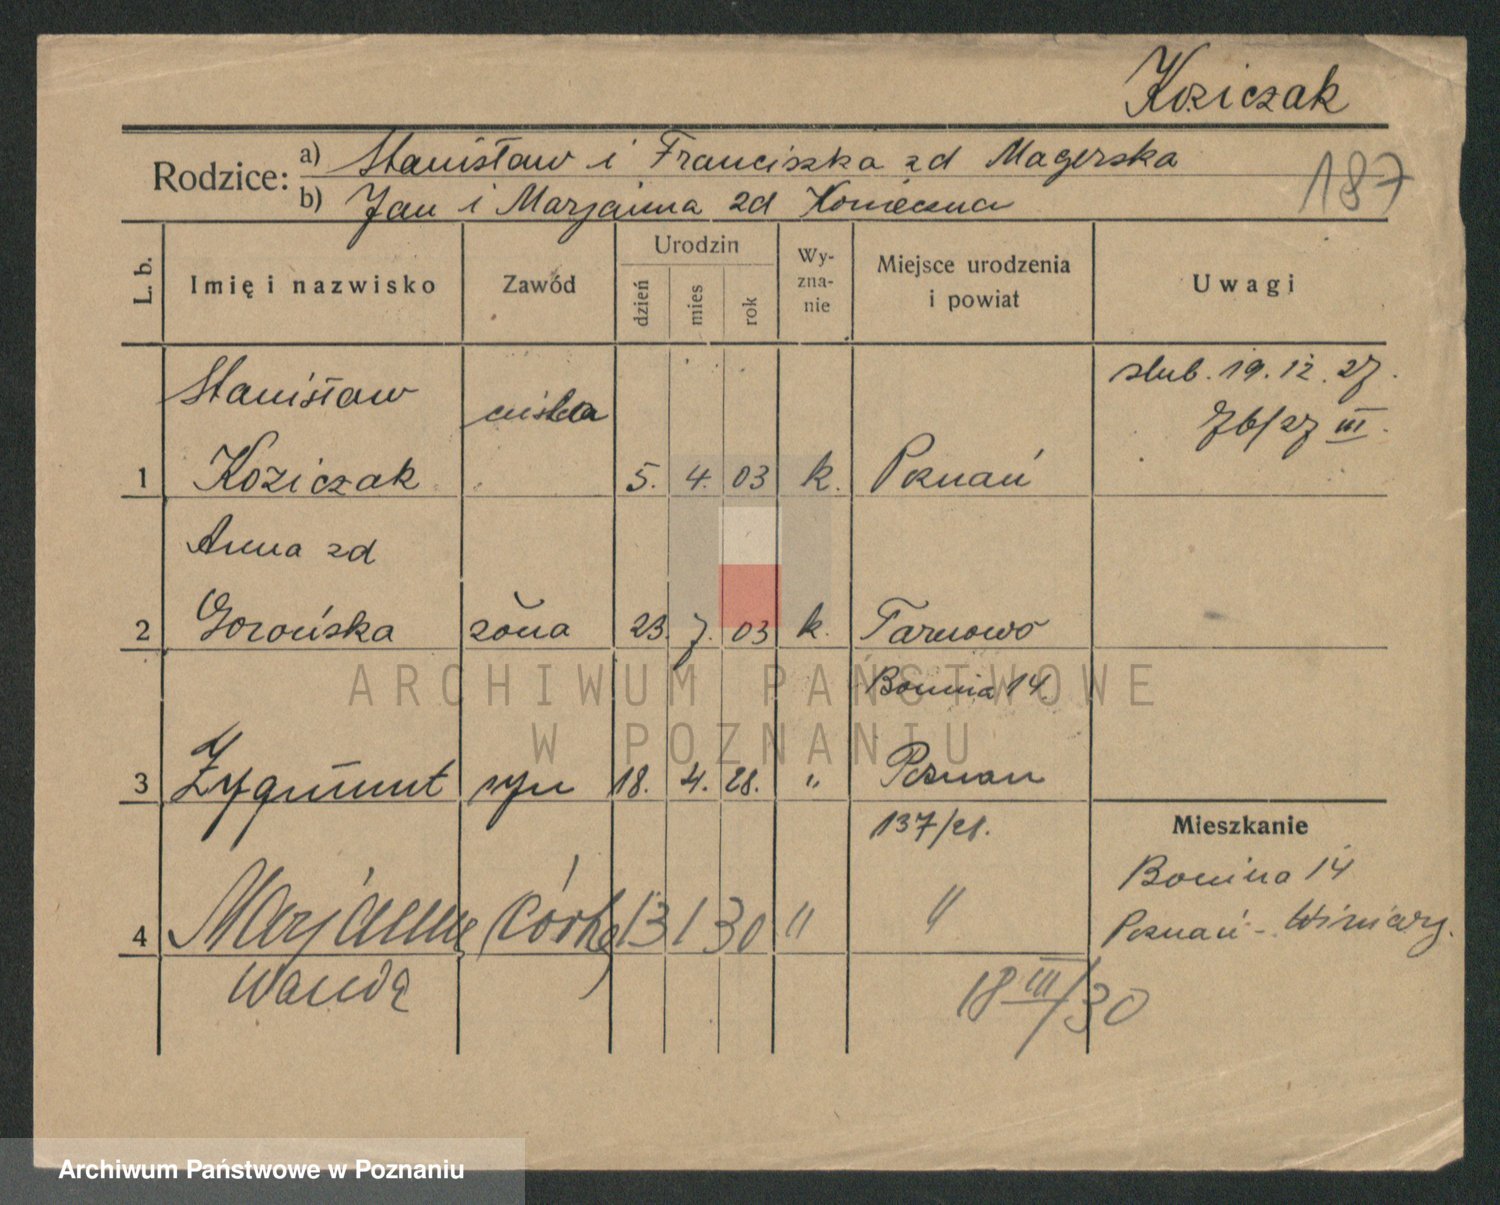 Koziczak
Rodzice: a) Stanisław i Franciszka zd Magerska
b) Jan i Marjanna zd Konieczna
187
L. b. Imię i nazwisko Zawód Urodzin dzień mies rok Wy-zna-nie Miejsce urodzenia i powiat Uwagi
Stanisław ślub. 19.12.27.
7b/27 III.
1 Koziczak 5. 4. 03 k. Poznań
Anna zd
2 Gorońska żona 23. 7. 03 k. Tarnowo
Bonina 14.
3 Zygmunt syn 18. 4. 28. " Poznań
137/28.
Mieszkanie
Bonina 14
4 Marjanna córka 13 1 30 " "
Poznań - Winiary.
Wanda
18 III/30
ARCHIWUM PAŃSTWOWE
W POZNANIU
Archiwum Państwowe w Poznaniu